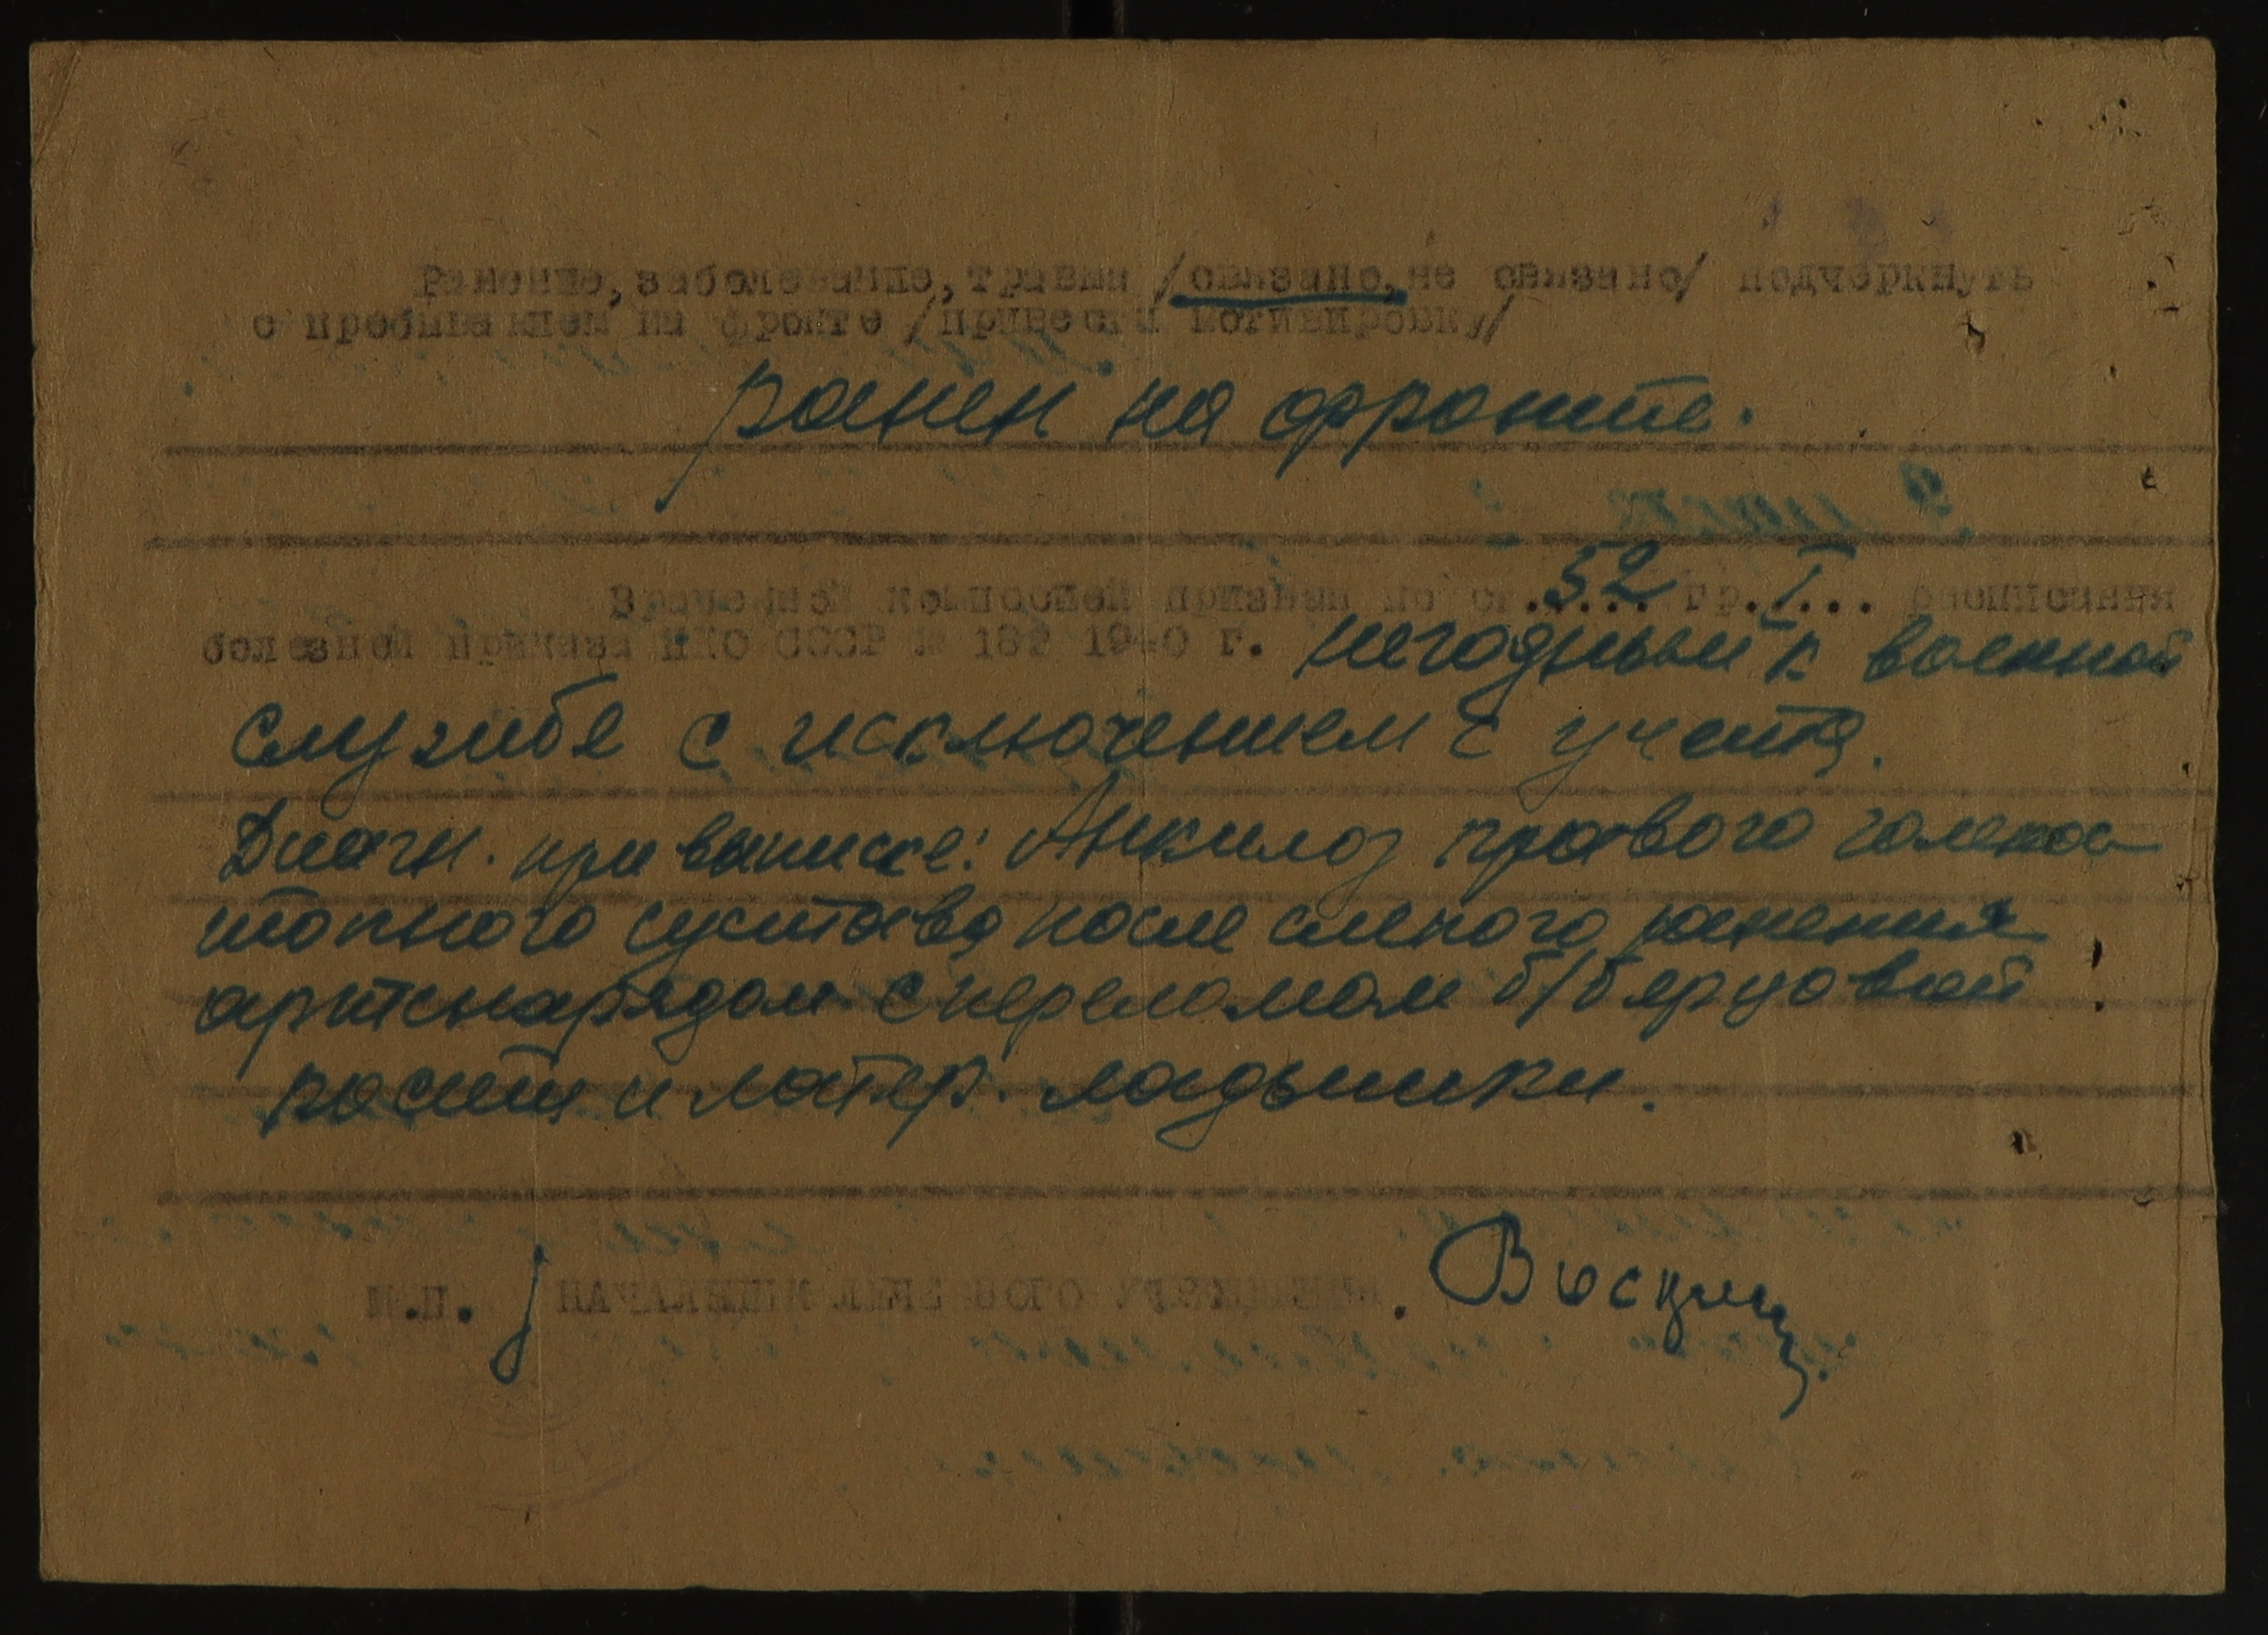 Ранение, заболевание, травма /связано, не связано/ подчеркнуть
с пребыванием на фронте /привести мотивировку/
ранен на фронте.
Врачебной комиссией признан по ст. 52 гр. I... расписания
болезней приказа НКО СССР № 182 1940 г. негодным к военной
службе с исключением с учета.
Диагн. при выписке: Анкилоз правого голено-
стопного сустава после слепого ранения
артснарядом с переломом б/берцовой
кости и латер. лодыжки.
М.П. НАЧАЛЬНИК ЛЕЧЕБНОГО УЧРЕЖДЕНИЯ